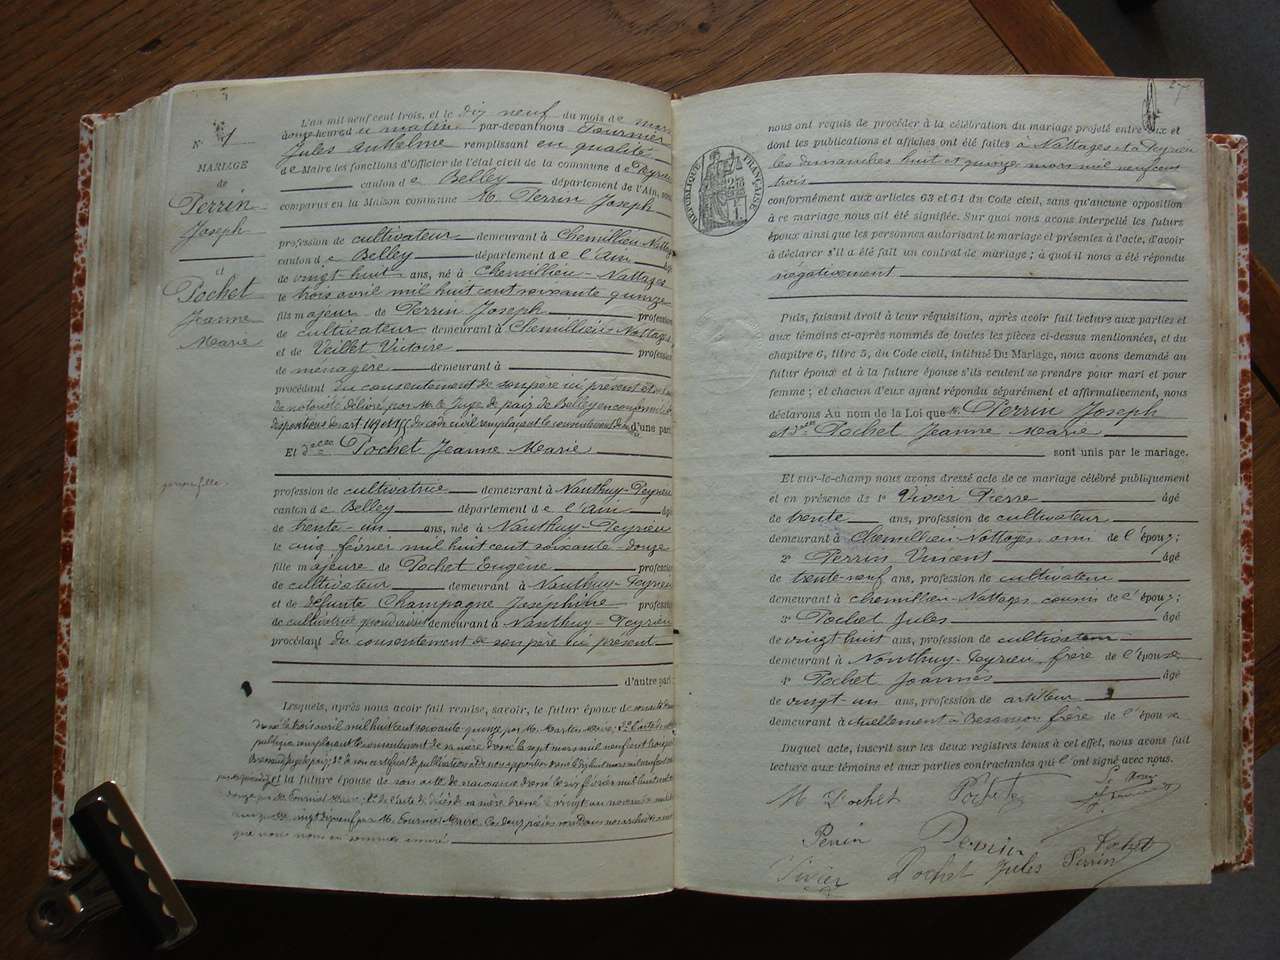 N° 1
MARIAGE
de
Perrin
Joseph
et
Pochet
Jeanne
Marie
L'an mil neuf cent trois, et le dix neuf du mois de mars
heures du matin par-devant nous Fournier
Jules Anthelme remplissant en qualité
de Maire les fonctions d'Officier de l'état civil de la commune de Peyrieu
canton de Belley département de l'Ain, sont
comparus en la Maison commune M. Perrin Joseph
profession de cultivateur demeurant à Chemillieu-Nattages
canton de Belley département de l'Ain âgé
de vingt huit ans, né à Chemillieu-Nattages
le trois avril mil huit cent soixante quinze
fils majeur de Perrin Joseph profession
de cultivateur demeurant à Chemillieu-Nattages
et de Veillet Victoire profession
de ménagère demeurant à
procédant du consentement de son père ici présent et
de notoriété délivré par M. le Juge de paix de Belley en conformité
dispositions des art du code civil remplaçant le consentement de d'une part
Et Pochet Jeanne Marie
profession de cultivatrice demeurant à Nanthuy-Peyrieu
canton de Belley département de l'Ain âgé
de trente-un ans, née à Nanthuy-Peyrieu
le cinq février mil huit cent soixante-douze
fille majeure de Pochet Eugène profession
de cultivateur demeurant à Nanthuy-Peyrieu
et de défunte Champagne Joséphine profession
de cultivatrice demeurant à Nanthuy-Peyrieu
procédant du consentement de son père ici présent
d'autre part
Lesquels, après nous avoir fait remise, savoir, le futur époux de son acte de
le trois avril mil huit cent soixante quinze par M. Martin Maire,
remplaçant le consentement de sa mère dressé le sept mars mil neuf cent trois
et la future épouse de son acte de naissance dressé le six février mil huit cent
par M. Fournier Maire, de l'acte de décès de sa mère dressé le vingt un novembre mil
par M. Fournier Maire
que nous nous en sommes assuré
27
RÉPUBLIQUE FRANÇAISE
nous ont requis de procéder à la célébration du mariage projeté entre eux et
dont les publications et affiches ont été faites à Nattages et à Peyrieu
les dimanches huit et quinze mars mil neuf cent
trois
conformément aux articles 63 et 64 du Code civil, sans qu'aucune opposition
à ce mariage nous ait été signifiée. Sur quoi nous avons interpellé les futurs
époux ainsi que les personnes autorisant le mariage et présentes à l'acte, d'avoir
à déclarer s'il a été fait un contrat de mariage ; à quoi il nous a été répondu
négativement
Puis, faisant droit à leur réquisition, après avoir fait lecture aux parties et
aux témoins ci-après nommés de toutes les pièces ci-dessus mentionnées, et du
chapitre 6, titre 5, du Code civil, intitulé Du Mariage, nous avons demandé au
futur époux et à la future épouse s'ils veulent se prendre pour mari et pour
femme ; et chacun d'eux ayant répondu séparément et affirmativement, nous
déclarons Au nom de la Loi que M. Perrin Joseph
et Pochet Jeanne Marie
sont unis par le mariage.
Et sur-le-champ nous avons dressé acte de ce mariage célébré publiquement
et en présence de 1° Vivier Pierre âgé
de trente ans, profession de cultivateur
demeurant à Chemillieu-Nattages ami de l'époux;
2° Perrin Vincent âgé
de trente-neuf ans, profession de cultivateur
demeurant à Chemillieu-Nattages cousin de l'époux;
3° Pochet Jules âgé
de vingt huit ans, profession de cultivateur
demeurant à Nanthuy-Peyrieu frère de l'épouse
4° Pochet Joannès âgé
de vingt-un ans, profession de artilleur
demeurant actuellement à Besançon frère de l'épouse.
Duquel acte, inscrit sur les deux registres tenus à cet effet, nous avons fait
lecture aux témoins et aux parties contractantes qui l'ont signé avec nous.
M Pochet Pochet Le Maire
Perrin Perrin Pochet
Vivier Pochet Jules Perrin